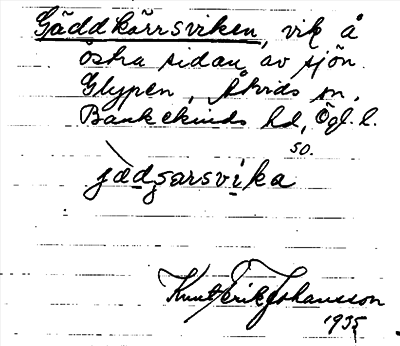 Gäddkärrsviken, vik å
östra sidan av sjön
Glypen, Åtvids sn,
Bankekinds hd, Ögl. l.
50.
jædʒarsvika
Knut Erik Johansson
1935